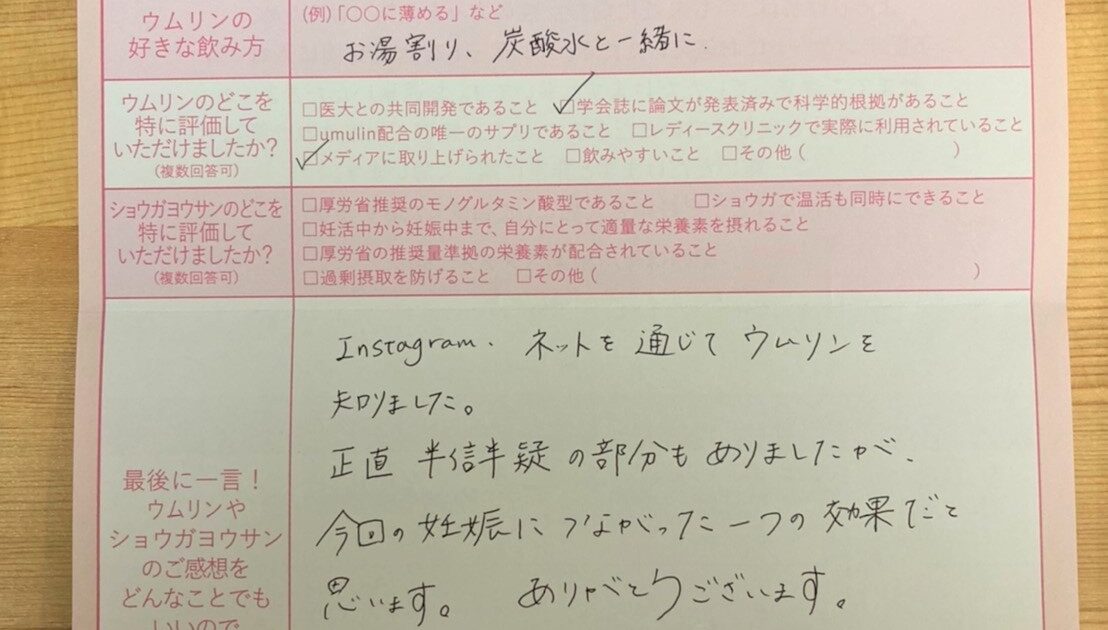 ウムリンの
好きな飲み方
(例)「〇〇に薄める」など
お湯割り、炭酸水と一緒に.
ウムリンのどこを
特に評価して
いただけましたか?
(複数回答可)
□医大との共同開発であること □学会誌に論文が発表済みで科学的根拠があること
□umulin配合の唯一のサプリであること □レディースクリニックで実際に利用されていること
□メディアに取り上げられたこと □飲みやすいこと □その他( )
ショウガヨウサンのどこを
特に評価して
いただけましたか?
(複数回答可)
□厚労省推奨のモノグルタミン酸型であること □ショウガで温活も同時にできること
□妊活中から妊娠中まで、自分にとって適量な栄養素を摂れること
□厚労省の推奨量準拠の栄養素が配合されていること
□過剰摂取を防げること □その他( )
最後に一言!
ウムリンや
ショウガヨウサン
のご感想を
どんなことでも
いいので
Instagram、ネットを通じてウムリンを
知りました。
正直半信半疑の部分もありましたが、
今回の妊娠につながった一つの効果だと
思います。 ありがとうございます。